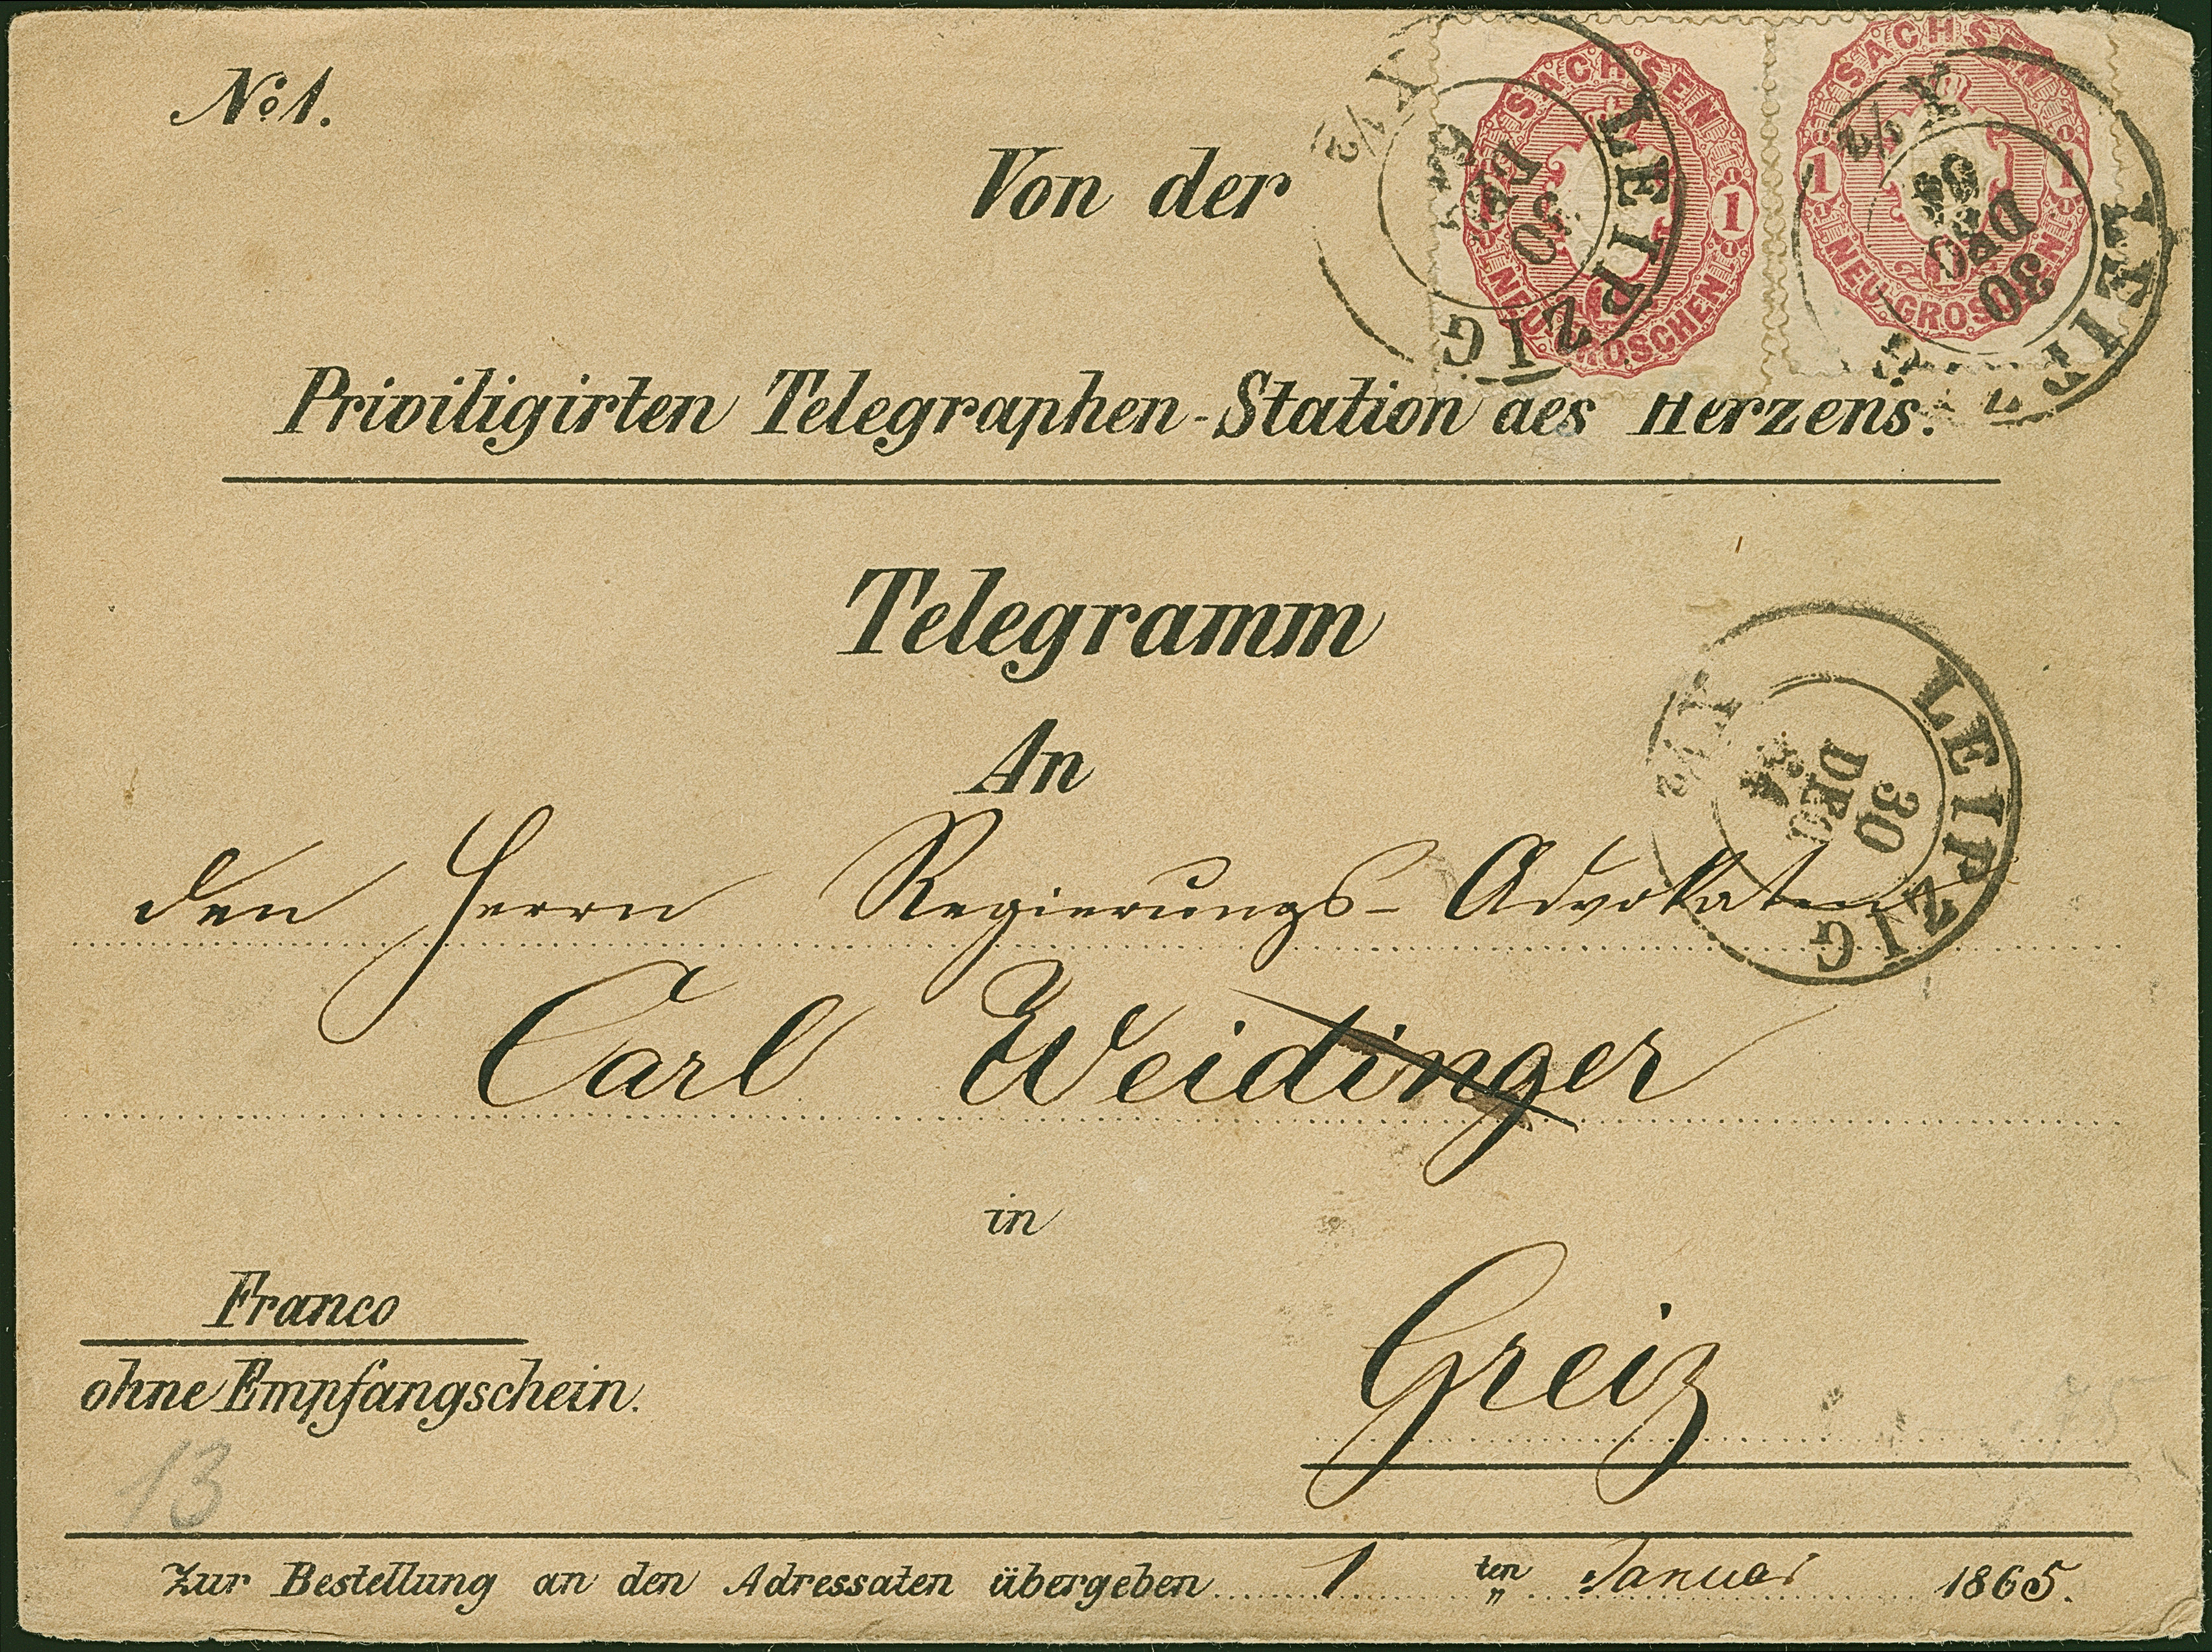 No 1.
SACHSEN
1 1
NEU-GROSCHEN
SACHSEN
1 1
NEU-GROSCHEN
LEIPZIG
30
DEC
64
LEIPZIG
30
DEC
Von der
Priviligirten Telegraphen-Station des Herzens.
Telegramm
An
LEIPZIG
30
DEC
64
den Herrn Regierungs-Advokaten
Carl Weidinger
in
Greiz
Franco
ohne Empfangschein.
13
Zur Bestellung an den Adressaten übergeben 1 ten Januar 1865.